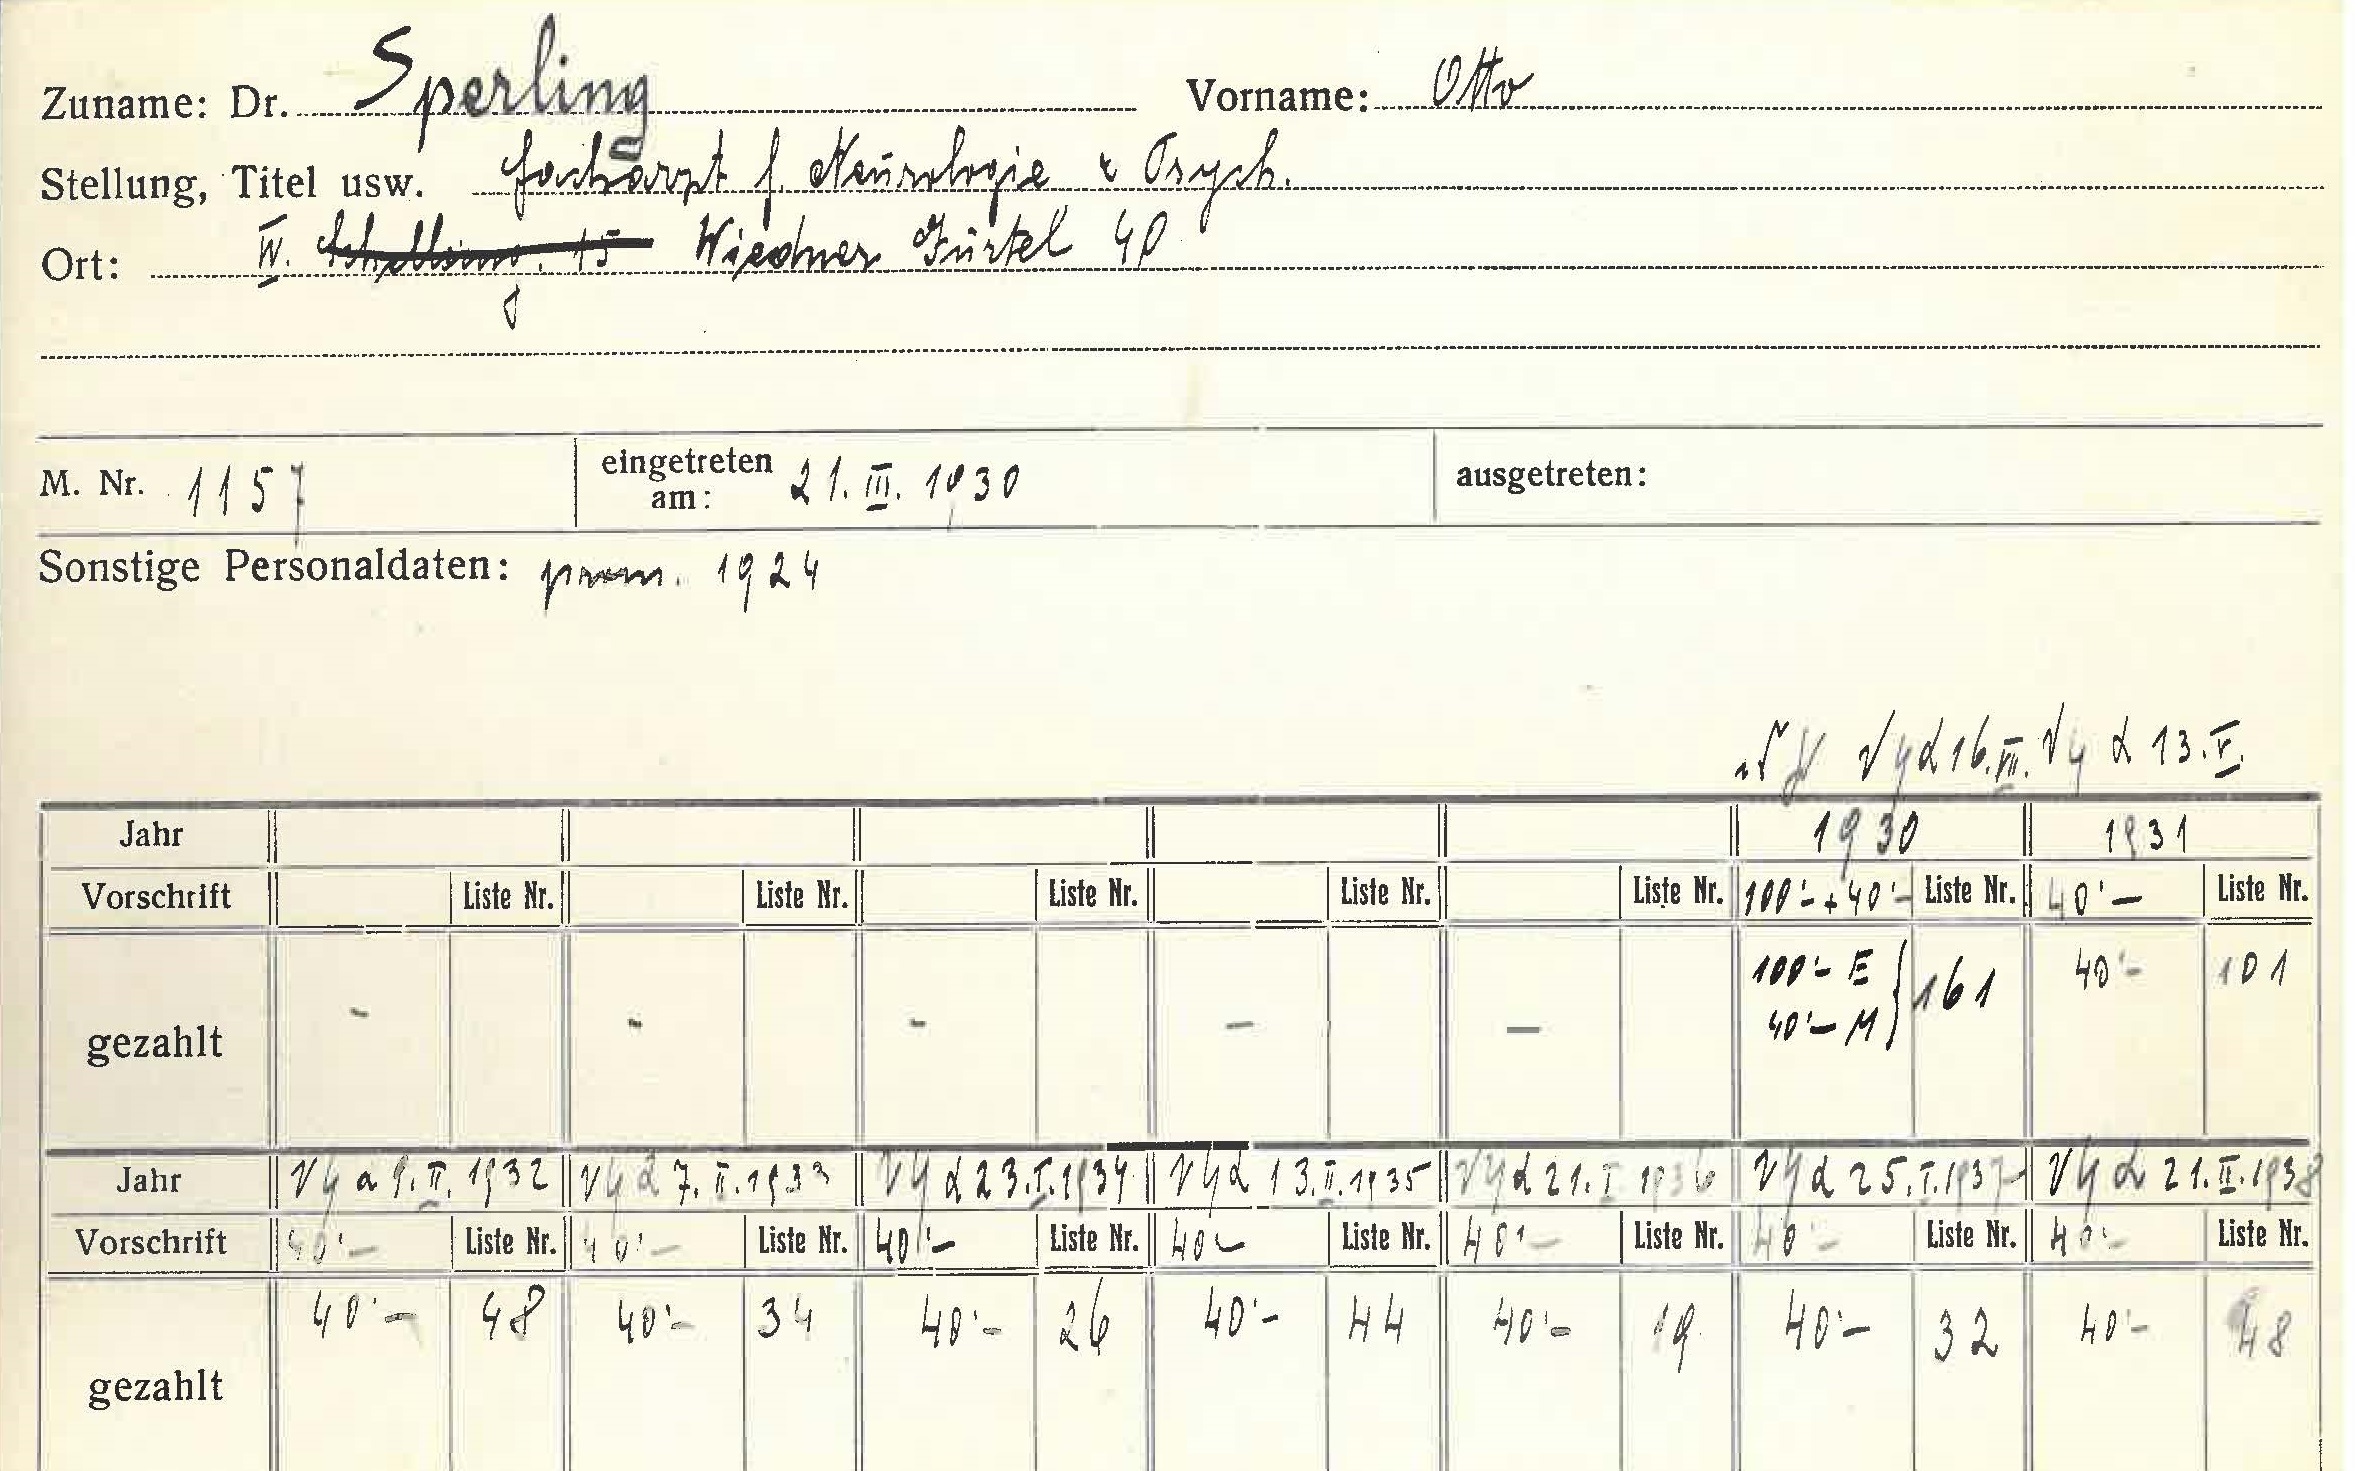 Zuname: Dr. Sperling Vorname: Otto
Stellung, Titel usw. Facharzt f. Neurologie u Psych.
Ort: IV. Schelleing. 15 Wiedner Gürtel 40
M. Nr. 1157 eingetreten am: 21. III. 1930 ausgetreten:
Sonstige Personaldaten: prom. 1924
Vg d 16. VII. Vg d 13. V.
Jahr 1930 1931
Vorschrift Liste Nr. Liste Nr. Liste Nr. Liste Nr. Liste Nr. 100'- + 40'- Liste Nr. 40'- Liste Nr.
gezahlt - - - - - 100'- E 40'- M } 161 40'- 101
Jahr Vg a 9. II. 1932 Vg d 7. II. 1933 Vg d 23. I. 1934 Vg d 13. II. 1935 Vg d 21. I 1936 Vg d 25. I. 1937 Vg d 21. II. 1938
Vorschrift 40'- Liste Nr. 40'- Liste Nr. 40'- Liste Nr. 40'- Liste Nr. 40'- Liste Nr. 40'- Liste Nr. 40'- Liste Nr.
gezahlt 40'- 48 40'- 34 40'- 26 40'- 44 40'- 19 40'- 32 40'- 48